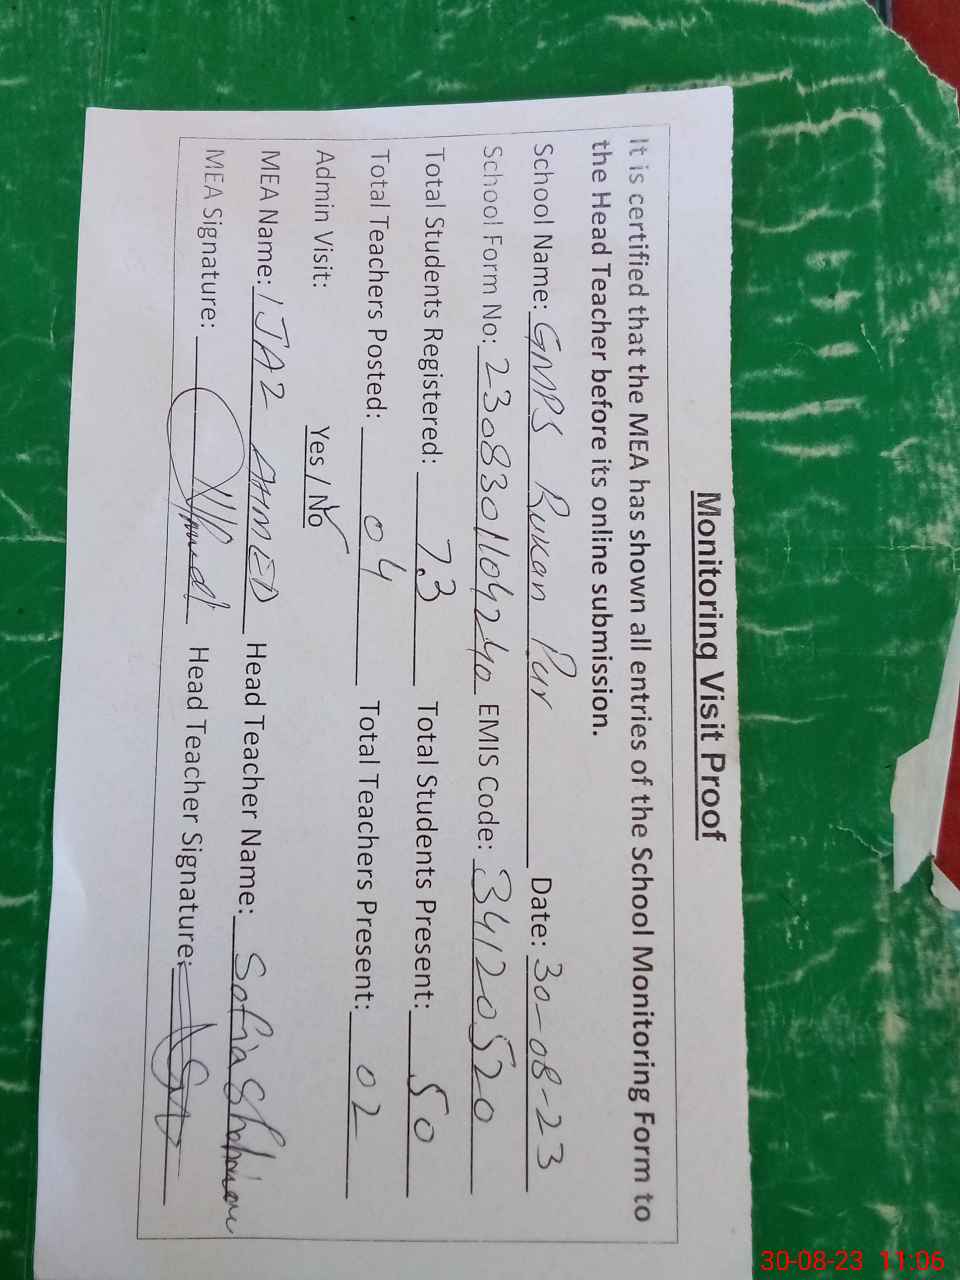 Monitoring Visit Proof
It is certified that the MEA has shown all entries of the School Monitoring Form to
the Head Teacher before its online submission.
School Name: GMPS Ruken Pur Date: 30-08-23
School Form No: 2308301104240 EMIS Code: 34120520
Total Students Registered: 73 Total Students Present: 50
Total Teachers Posted: 04 Total Teachers Present: 02
Admin Visit: Yes / No
MEA Name: IJAZ AHMED Head Teacher Name: Sofia
MEA Signature: Head Teacher Signature:
30-08-23 11:06